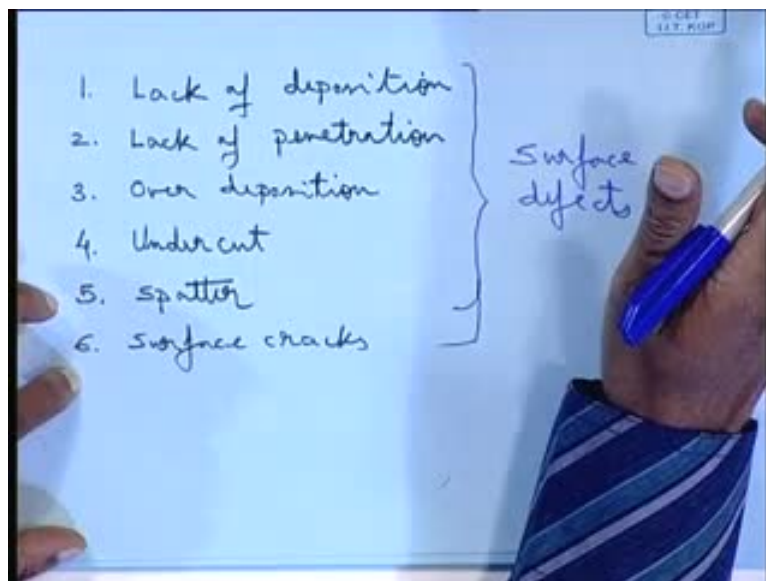 © CET
I.I.T. KGP
1. Lack of deposition
2. Lack of penetration
3. Over deposition
4. Undercut
5. Spatter
6. Surface cracks
Surface
defects